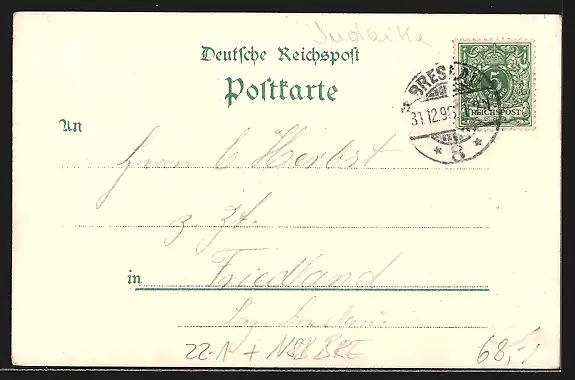 Judaika
Deutsche Reichspost
Postkarte
BRESLAU
31.12.96
* 8 *
5
REICHSPOST
An
Herrn C. Herbst
z. Zt.
in Friedland
Bz. Breslau.
22-1 + NSB BRE
68,-